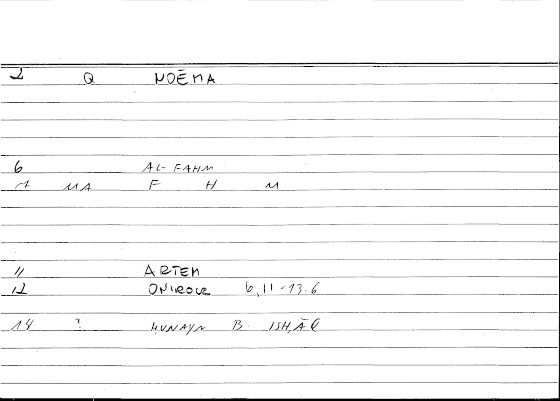 1 Q NOĒMA
6 AL-FAHM
7 MA F H M
11 ARTEM
12 ONIROCR 6,11-13.6
14 ? ḤUNAYN B. ISḤĀQ